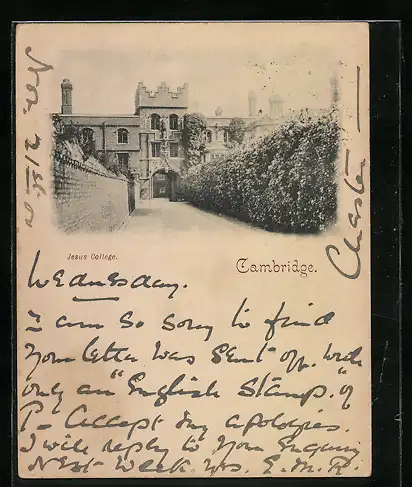 Nov. 21st
Chester
Jesus College.
Cambridge.
Wednesday.
I am so sorry to find
your letter was sent off with
only an "English Stamp."
Accept my apologies.
I will reply to your Enquiry
Next Week. Yrs. E. M. R.